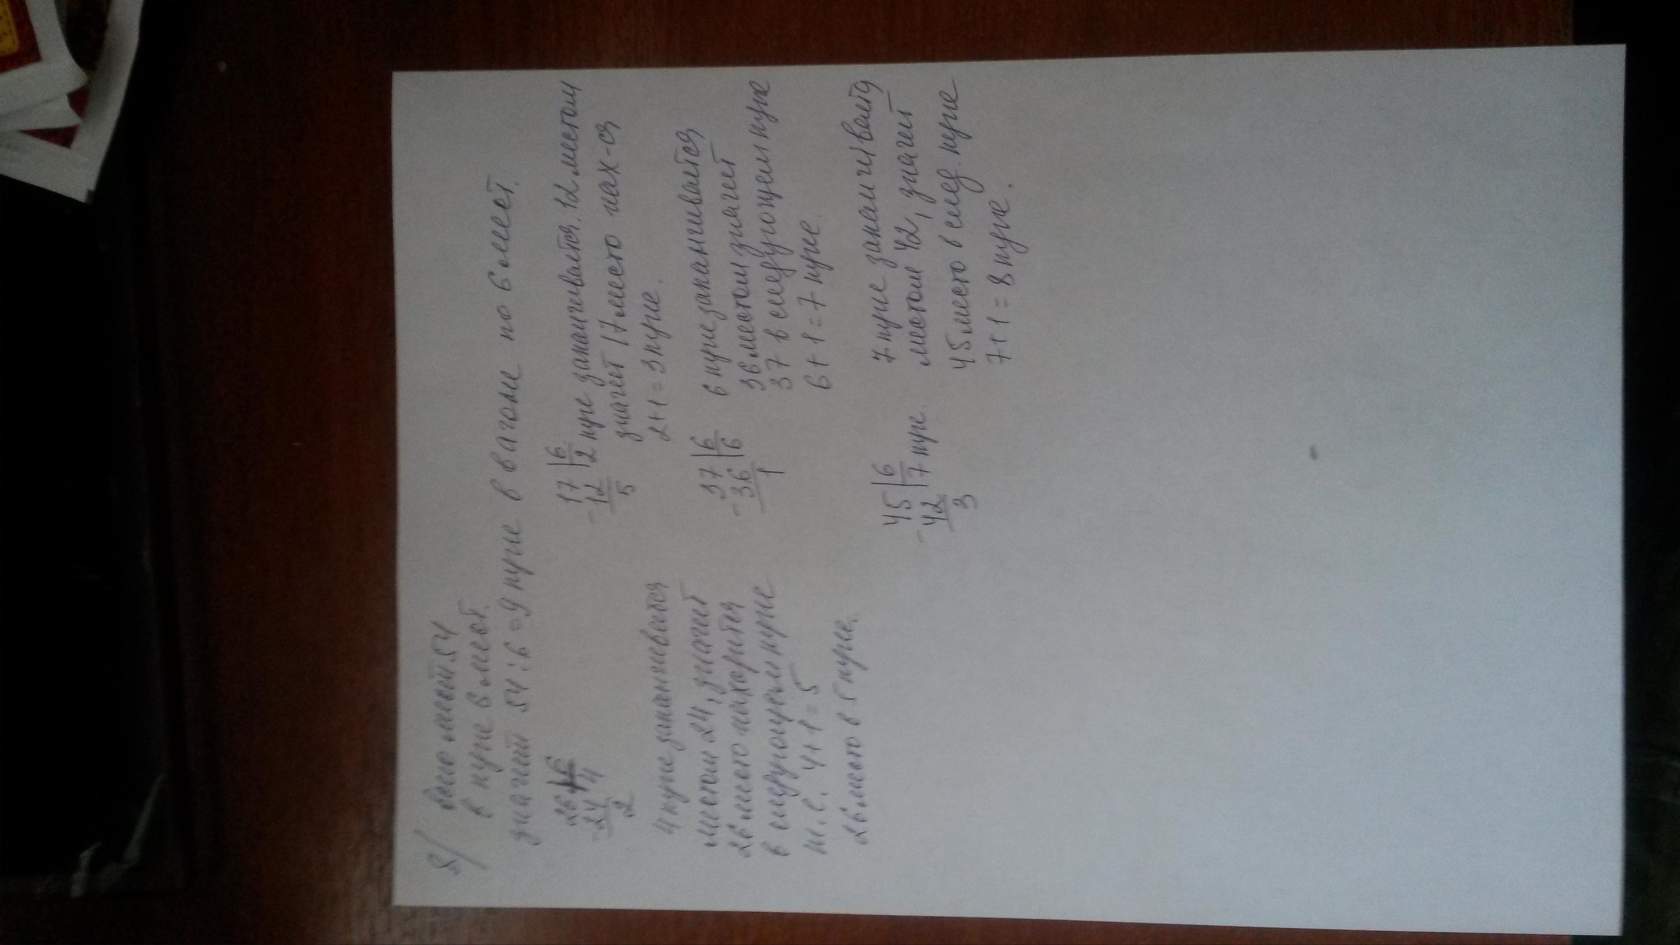 5) Всего мест 54
в купе 6 мест.
значит 54 : 6 = 9 купе в вагоне по 6 мест.
26 | 6
- 24 4
2
4 купе заканчивается
местом 24, значит
26 место находится
в следующем купе
т.е. 4+1=5
26 место в 5 купе.
17 | 6
- 12 2 купе заканчивается 12 местом
5 значит 17 место нах-ся
2+1=3 купе.
37 | 6
- 36 6
1
6 купе заканчивается
36 местом значит
37 в следующем купе
6+1=7 купе
45 | 6
- 42 7 купе.
3
7 купе заканчивается
местом 42, значит
45 место в след. купе
7+1=8 купе.